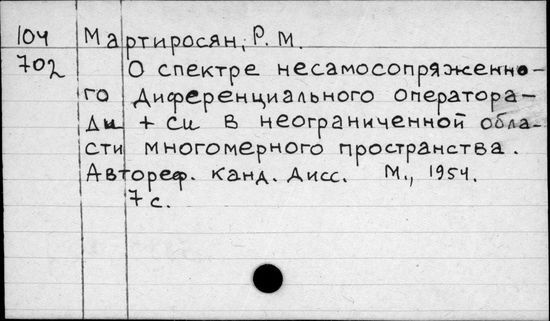 104 Мартиросян, Р. М.
702 О спектре несамосопряженно-
го диференциального оператора -
Δu + cu в неограниченной обла-
сти многомерного пространства.
Автореф. канд. дисс. М., 1954.
7 с.